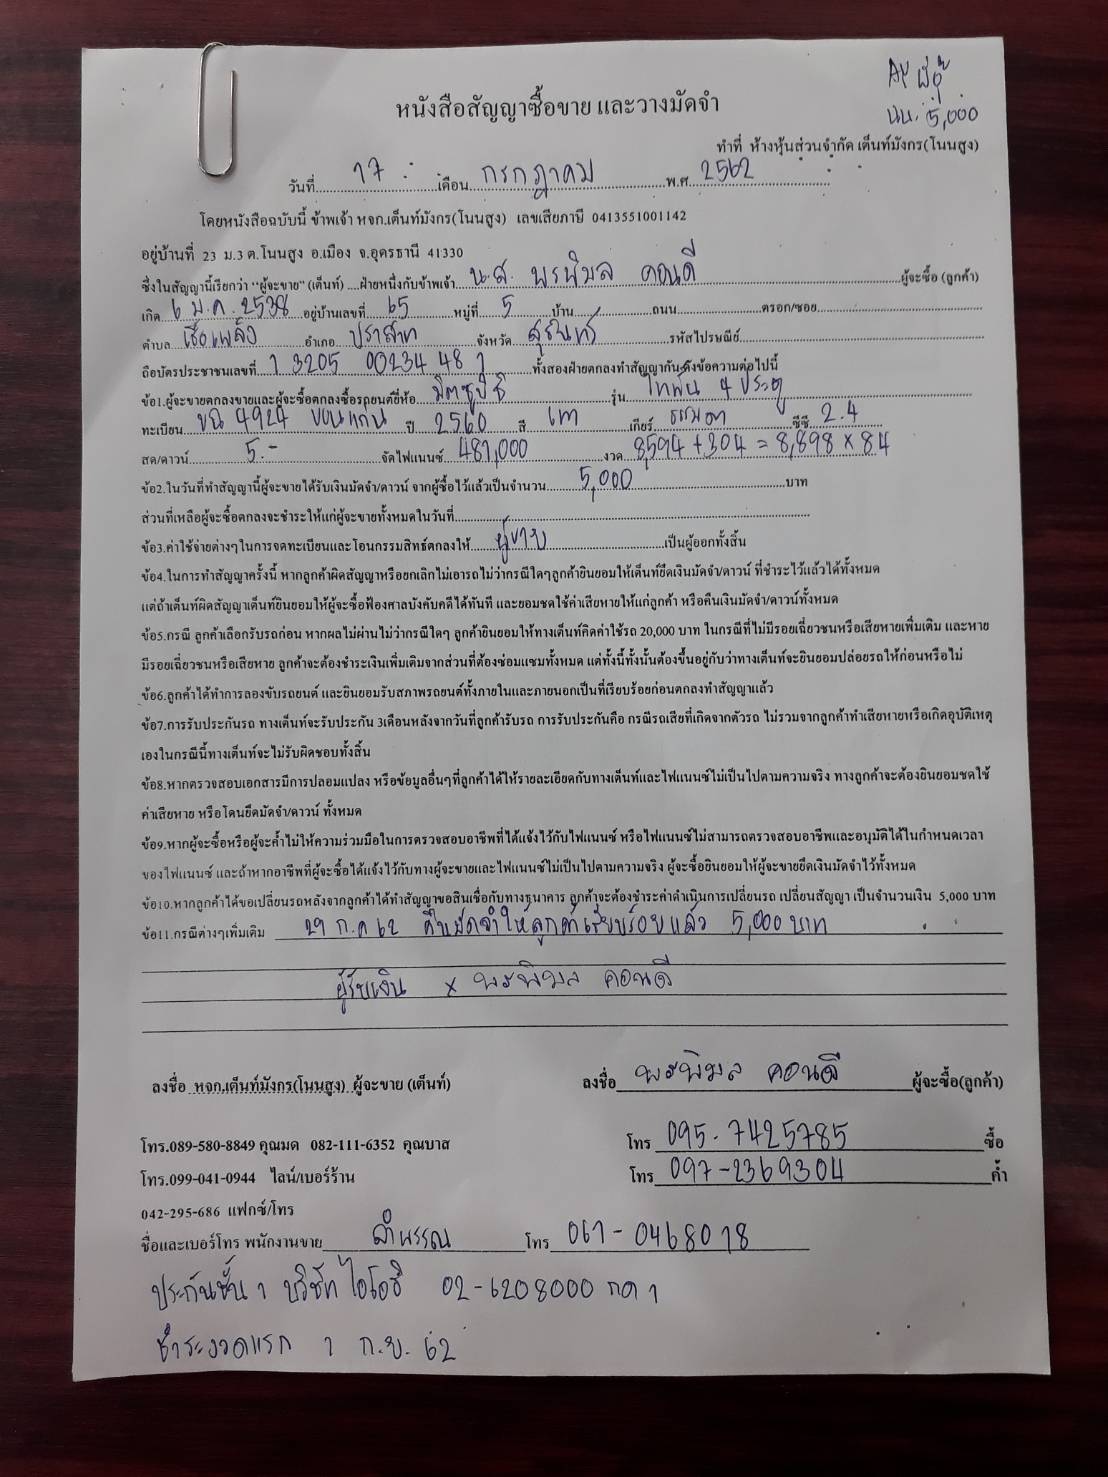 นน. 5,000
หนังสือสัญญาซื้อขาย และวางมัดจำ
ทำที่ ห้างหุ้นส่วนจำกัด เต็นท์มังกร(โนนสูง)
วันที่ 17 เดือน กรกฎาคม พ.ศ. 2562
โดยหนังสือฉบับนี้ ข้าพเจ้า หจก.เต็นท์มังกร(โนนสูง) เลขเสียภาษี 0413551001142
อยู่บ้านที่ 23 ม.3 ต.โนนสูง อ.เมือง จ.อุดรธานี 41330
ซึ่งในสัญญานี้เรียกว่า "ผู้จะขาย" (เต็นท์) ....ฝ่ายหนึ่งกับข้าพเจ้า น.ส. พรพิมล คอนดี ผู้จะซื้อ (ลูกค้า)
เกิด 6 ม.ค. 2538 อยู่บ้านเลขที่ 65 หมู่ที่ 5 บ้าน ถนน ตรอก/ซอย
ตำบล เชื้อเพลิง อำเภอ ปราสาท จังหวัด สุรินทร์ รหัสไปรษณีย์
ถือบัตรประชาชนเลขที่ 1 3205 00234 48 1 ทั้งสองฝ่ายตกลงทำสัญญากันดังข้อความต่อไปนี้
ข้อ1.ผู้จะขายตกลงขายและผู้จะซื้อตกลงซื้อรถยนต์ยี่ห้อ มิตซูบิชิ รุ่น ไทพัน 4 ประตู
ทะเบียน ขฉ 4924 ขอนแก่น ปี 2560 สี เทา เกียร์ ธรรมดา ซีซี 2.4
สด/ดาวน์ 5.- จัดไฟแนนซ์ 481,000 งวด 8,594 + 304 = 8,898 x 84
ข้อ2.ในวันที่ทำสัญญานี้ผู้จะขายได้รับเงินมัดจำ/ดาวน์ จากผู้ซื้อไว้แล้วเป็นจำนวน 5,000 บาท
ส่วนที่เหลือผู้จะซื้อตกลงจะชำระให้แก่ผู้จะขายทั้งหมดในวันที่
ข้อ3.ค่าใช้จ่ายต่างๆในการจดทะเบียนและโอนกรรมสิทธ์ตกลงให้ ผู้ขาย เป็นผู้ออกทั้งสิ้น
ข้อ4.ในการทำสัญญาครั้งนี้ หากลูกค้าผิดสัญญาหรือยกเลิกไม่เอารถไม่ว่ากรณีใดๆลูกค้ายินยอมให้เต็นท์ยึดเงินมัดจำ/ดาวน์ ที่ชำระไว้แล้วได้ทั้งหมด
แต่ถ้าเต็นท์ผิดสัญญาเต็นท์ยินยอมให้ผู้จะซื้อฟ้องศาลบังคับคดีได้ทันที และยอมชดใช้ค่าเสียหายให้แก่ลูกค้า หรือคืนเงินมัดจำ/ดาวน์ทั้งหมด
ข้อ5.กรณี ลูกค้าเลือกรับรถก่อน หากผลไม่ผ่านไม่ว่ากรณีใดๆ ลูกค้ายินยอมให้ทางเต็นท์คิดค่าใช้รถ 20,000 บาท ในกรณีที่ไม่มีรอยเฉี่ยวชนหรือเสียหายเพิ่มเติม และหาย
มีรอยเฉี่ยวชนหรือเสียหาย ลูกค้าจะต้องชำระเงินเพิ่มเติมจากส่วนที่ต้องซ่อมแซมทั้งหมด แต่ทั้งนี้ทั้งนั้นต้องขึ้นอยู่กับว่าทางเต็นท์จะยินยอมปล่อยรถให้ก่อนหรือไม่
ข้อ6.ลูกค้าได้ทำการลองขับรถยนต์ และยินยอมรับสภาพรถยนต์ทั้งภายในและภายนอกเป็นที่เรียบร้อยก่อนตกลงทำสัญญาแล้ว
ข้อ7.การรับประกันรถ ทางเต็นท์จะรับประกัน 3เดือนหลังจากวันที่ลูกค้ารับรถ การรับประกันคือ กรณีรถเสียที่เกิดจากตัวรถ ไม่รวมจากลูกค้าทำเสียหายหรือเกิดอุบัติเหตุ
เองในกรณีนี้ทางเต็นท์จะไม่รับผิดชอบทั้งสิ้น
ข้อ8.หากตรวจสอบเอกสารมีการปลอมแปลง หรือข้อมูลอื่นๆที่ลูกค้าได้ให้รายละเอียดกับทางเต็นท์และไฟแนนซ์ไม่เป็นไปตามความจริง ทางลูกค้าจะต้องยินยอมชดใช้
ค่าเสียหาย หรือโดนยึดมัดจำ/ดาวน์ ทั้งหมด
ข้อ9.หากผู้จะซื้อหรือผู้จะค้ำไม่ให้ความร่วมมือในการตรวจสอบอาชีพที่ได้แจ้งไว้กับไฟแนนซ์ หรือไฟแนนซ์ไม่สามารถตรวจสอบอาชีพและอนุมัติได้ในกำหนดเวลา
ของไฟแนนซ์ และถ้าหากอาชีพที่ผู้จะซื้อได้แจ้งไว้กับทางผู้จะขายและไฟแนนซ์ไม่เป็นไปตามความจริง ผู้จะซื้อยินยอมให้ผู้จะขายยึดเงินมัดจำไว้ทั้งหมด
ข้อ10.หากลูกค้าได้ขอเปลี่ยนรถหลังจากลูกค้าได้ทำสัญญาขอสินเชื่อกับทางธนาคาร ลูกค้าจะต้องชำระค่าดำเนินการเปลี่ยนรถ เปลี่ยนสัญญา เป็นจำนวนเงิน 5,000 บาท
ข้อ11.กรณีต่างๆเพิ่มเติม 29 ก.ค 62 คืนมัดจำให้ลูกค้าเรียบร้อยแล้ว 5,000 บาท
ผู้รับเงิน x พรพิมล คอนดี
ลงชื่อ หจก.เต็นท์มังกร(โนนสูง) ผู้จะขาย (เต็นท์) ลงชื่อ พรพิมล คอนดี ผู้จะซื้อ(ลูกค้า)
โทร.089-580-8849 คุณมด 082-111-6352 คุณบาส โทร 095-7425785 ซื้อ
โทร.099-041-0944 ไลน์/เบอร์ร้าน โทร 097-2369304 ค้ำ
042-295-686 แฟกซ์/โทร
ชื่อและเบอร์โทร พนักงานขาย ลำพรรณ โทร 061-0468018
ประกันชั้น 1 บริษัท ไอโออิ 02-6208000 กด 1
ชำระงวดแรก 1 ก.ย. 62